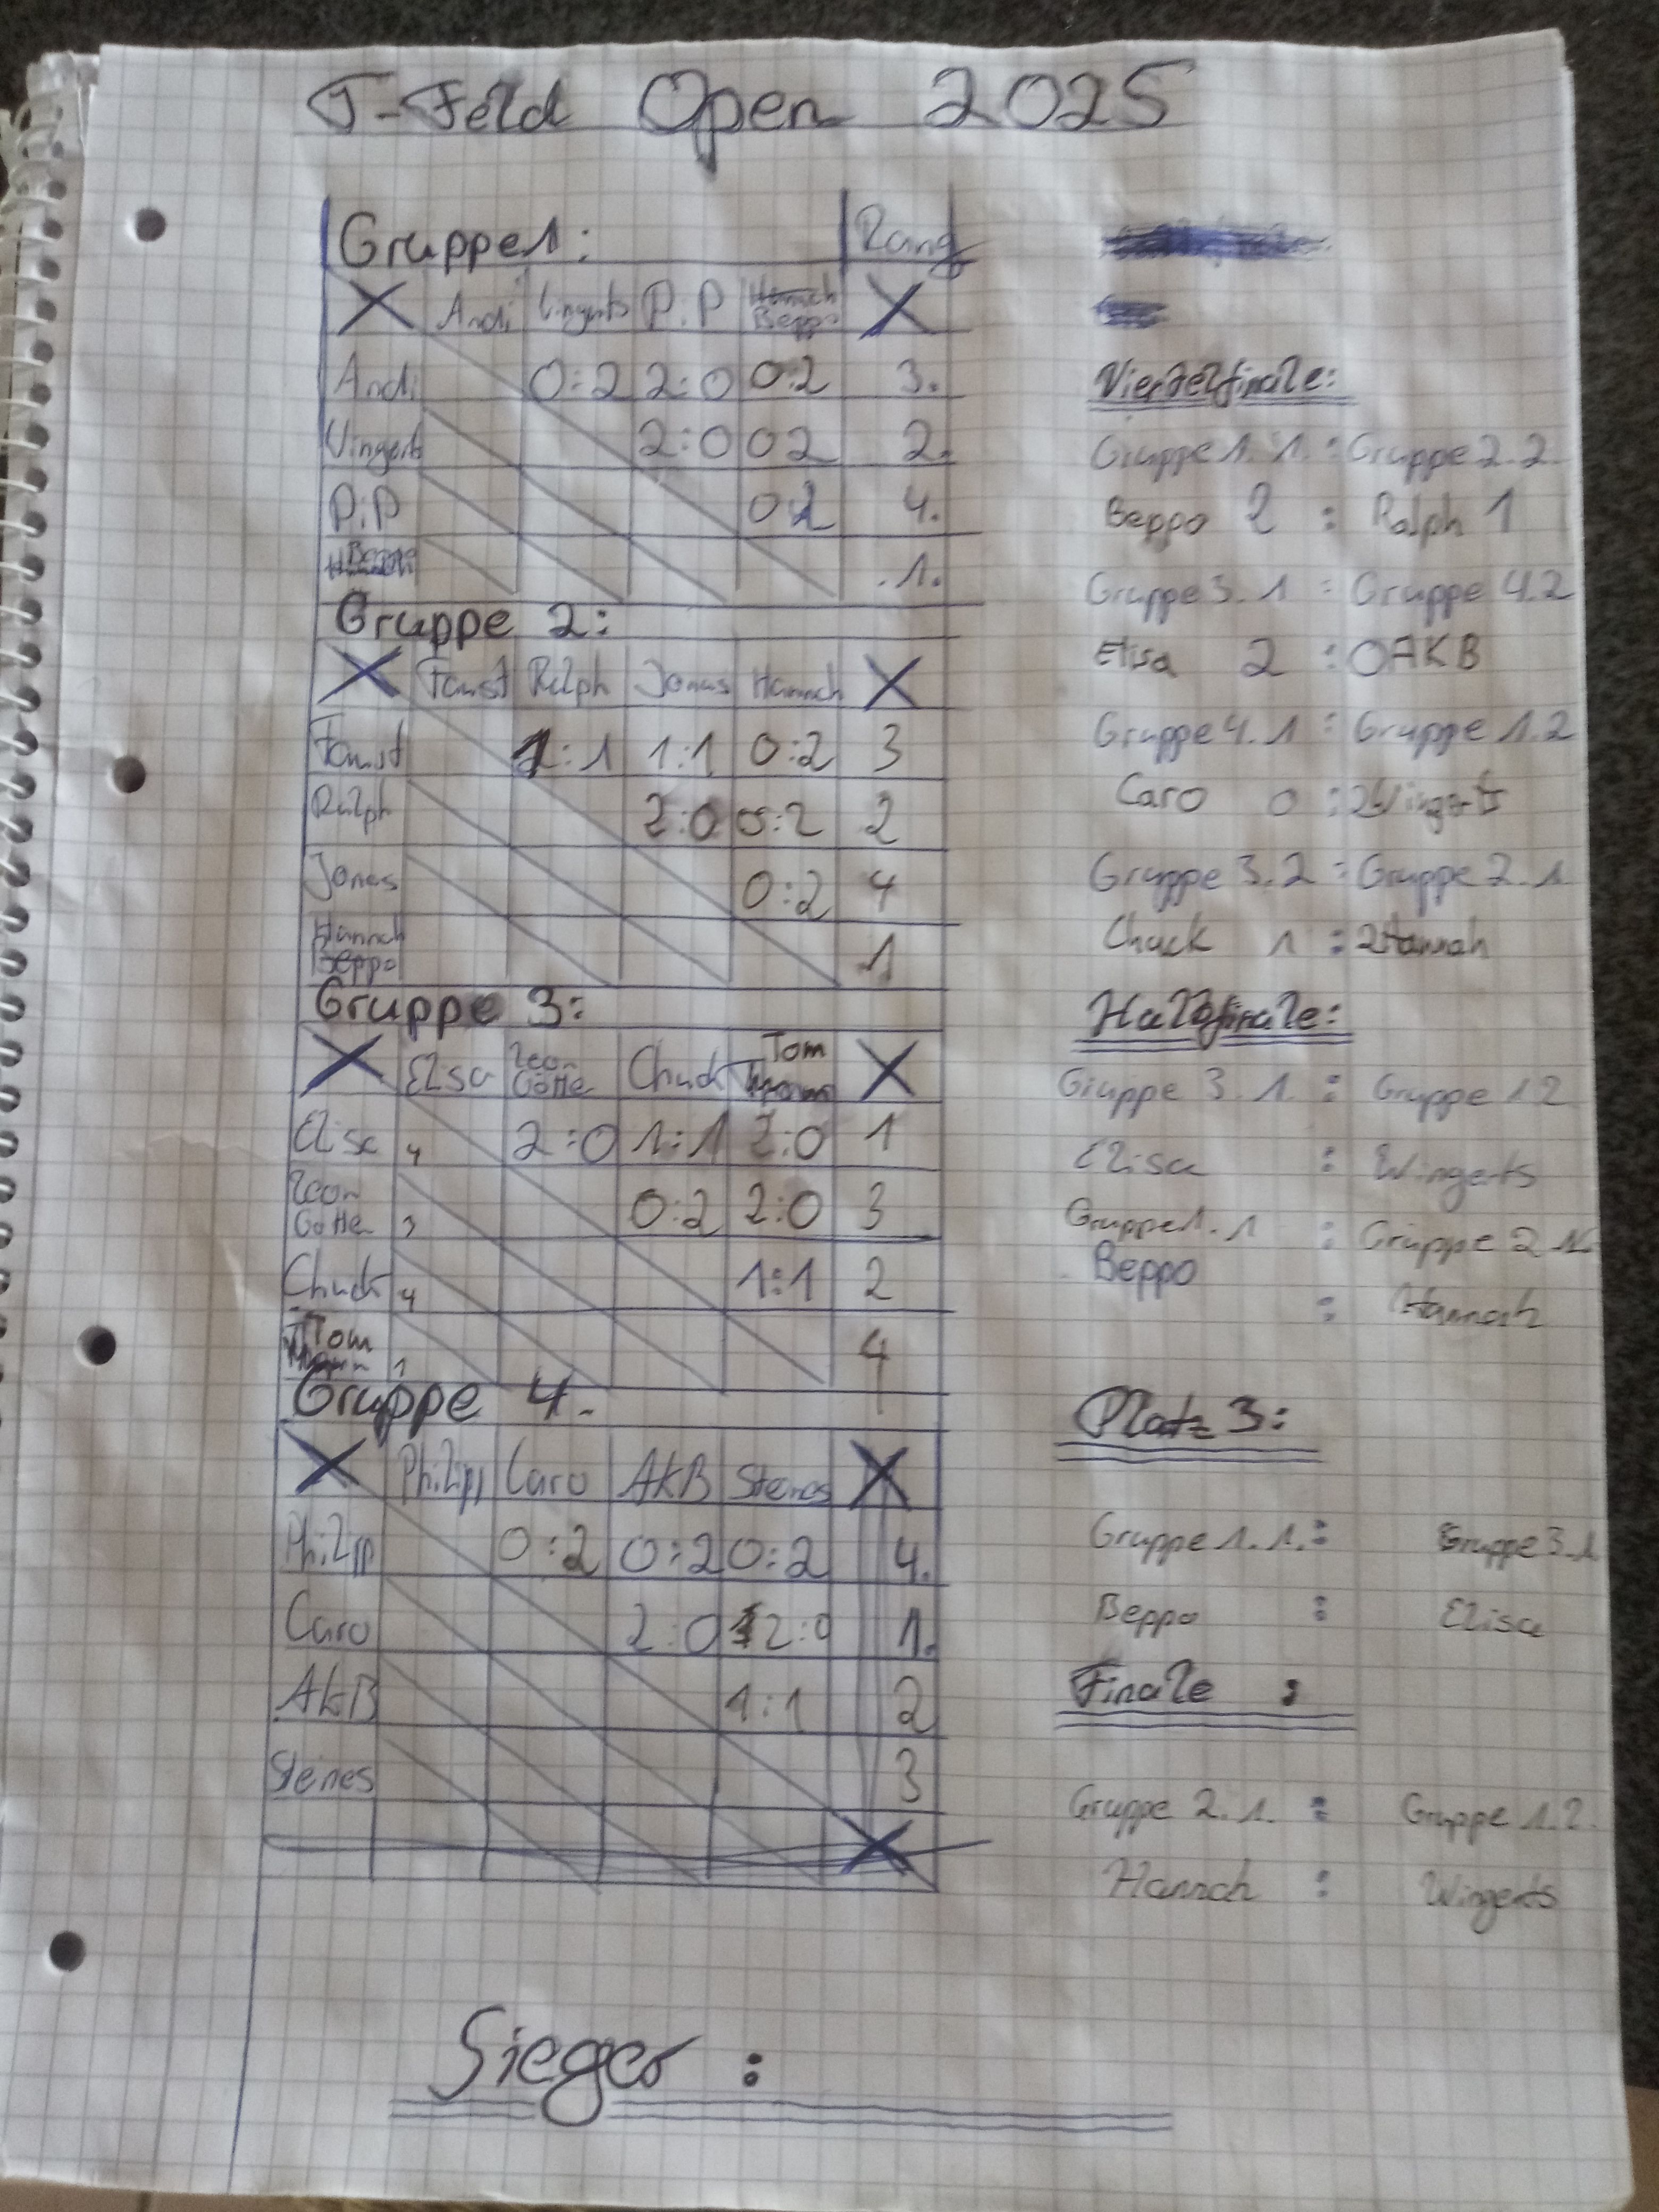 T-Feld Open 2025
Gruppe 1: Rang
Andi Wingerts P.P Beppo
Andi 0:2 2:0 0:2 3.
Wingerts 2:0 0 2 2.
P.P 0 2 4.
Beppo 1.
Gruppe 2:
Faust Ralph Jonas Hannah
Faust 1:1 1:1 0:2 3
Ralph 2:0 0:2 2
Jonas 0:2 4
Hannah
Beppo 1
Gruppe 3:
Elisa Leon
Götte Chuck Tom
Elisa 4 2:0 1:1 2:0 1
Leon
Götte 3 0:2 2:0 3
Chuck 4 1:1 2
Tom 1 4
Gruppe 4.
Philipp Caro AKB Steines
Philipp 0:2 0:2 0:2 4.
Caro 2:0 2:0 1.
AKB 1:1 2
Steines 3
Viertelfinale:
Gruppe 1.1. : Gruppe 2.2.
Beppo 2 : Ralph 1
Gruppe 3.1 : Gruppe 4.2
Elisa 2 : 0 AKB
Gruppe 4.1 : Gruppe 1.2
Caro 0 : 2 Wingerts
Gruppe 3.2 : Gruppe 2.1.
Chuck 1 : 2 Hannah
Halbfinale:
Gruppe 3.1. : Gruppe 1 2
Elisa : Wingerts
Gruppe 1.1 : Gruppe 2 1.
Beppo
: Hannah
Platz 3:
Gruppe 1.1. : Gruppe 3.1.
Beppo : Elisa
Finale :
Gruppe 2.1. : Gruppe 1.2.
Hannah : Wingerts
Sieger :